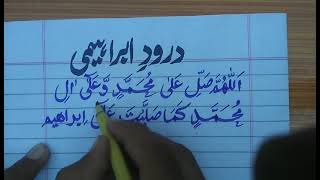 درودِ ابراہیمی
اَللّٰهُمَّ صَلِّ عَلٰى مُحَمَّدٍ وَّعَلٰٓى اٰلِ
مُحَمَّدٍ كَمَا صَلَّيْتَ عَلٰٓى اِبْرَاهِيْمَ